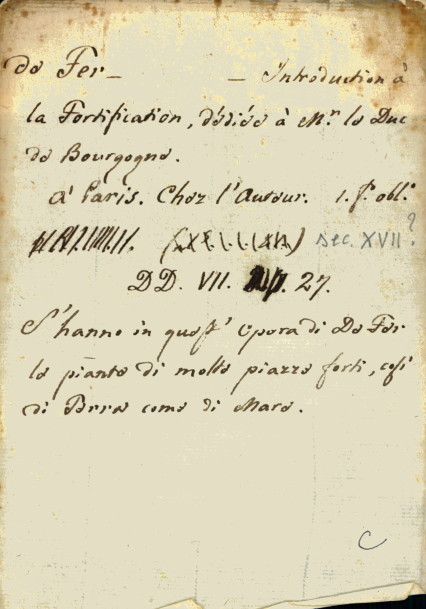 de Fer_ _ Introduction à
la Fortification, dédiée à M.r le Duc
de Bourgogne.
à Paris. Chez l'Auteur. 1. f.o obl.o
sec. XVII?
DD. VII. 27.
S'hanno in quest' opera di De Fer
le piante di molte piazze forti, così
di Terra come di Mare.
C